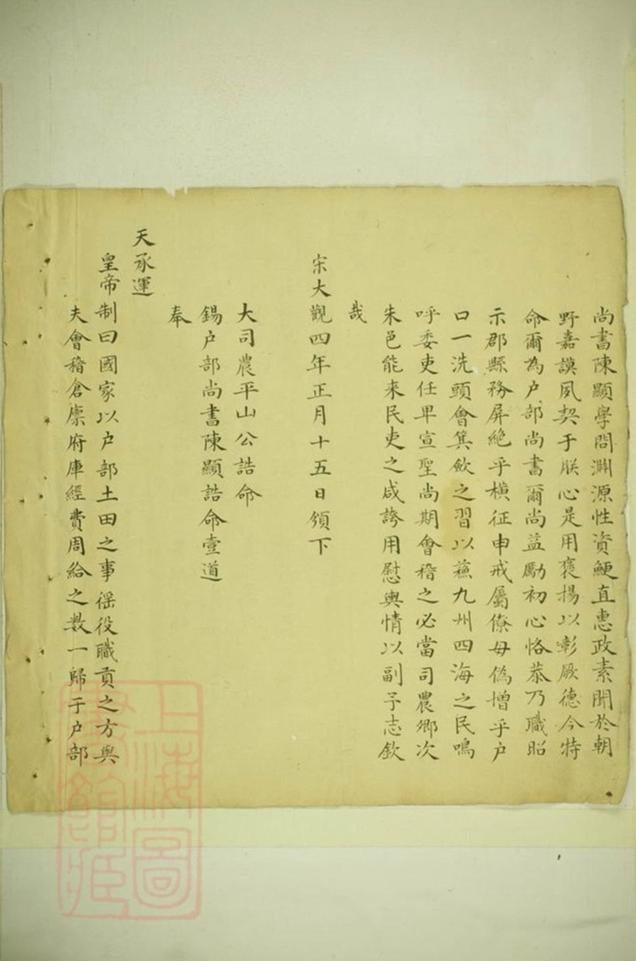 尚書陳顯學問淵源性資鯁直惠政素聞於朝
野嘉謨夙契于朕心是用褒揚以彰厥德今特
命爾為户部尚書爾尚益勵初心恪恭乃職昭
示郡縣務屏絶乎横征申戒屬僚毋偽增乎户
口一洗頭會箕歛之習以蘓九州四海之民嗚
呼委吏任卑宣聖尚期會稽之必當司農鄉次
朱邑能来民吏之咸誇用慰輿情以副予志欽
哉
宋大觀四年正月十五日領下
大司農平山公誥命
錫户部尚書陳顯誥命壹道
奉
天承運
皇帝制曰國家以户部土田之事徭役職貢之方與
夫會稽倉廩府庫經費周給之数一歸于户部
上海圖
書館藏